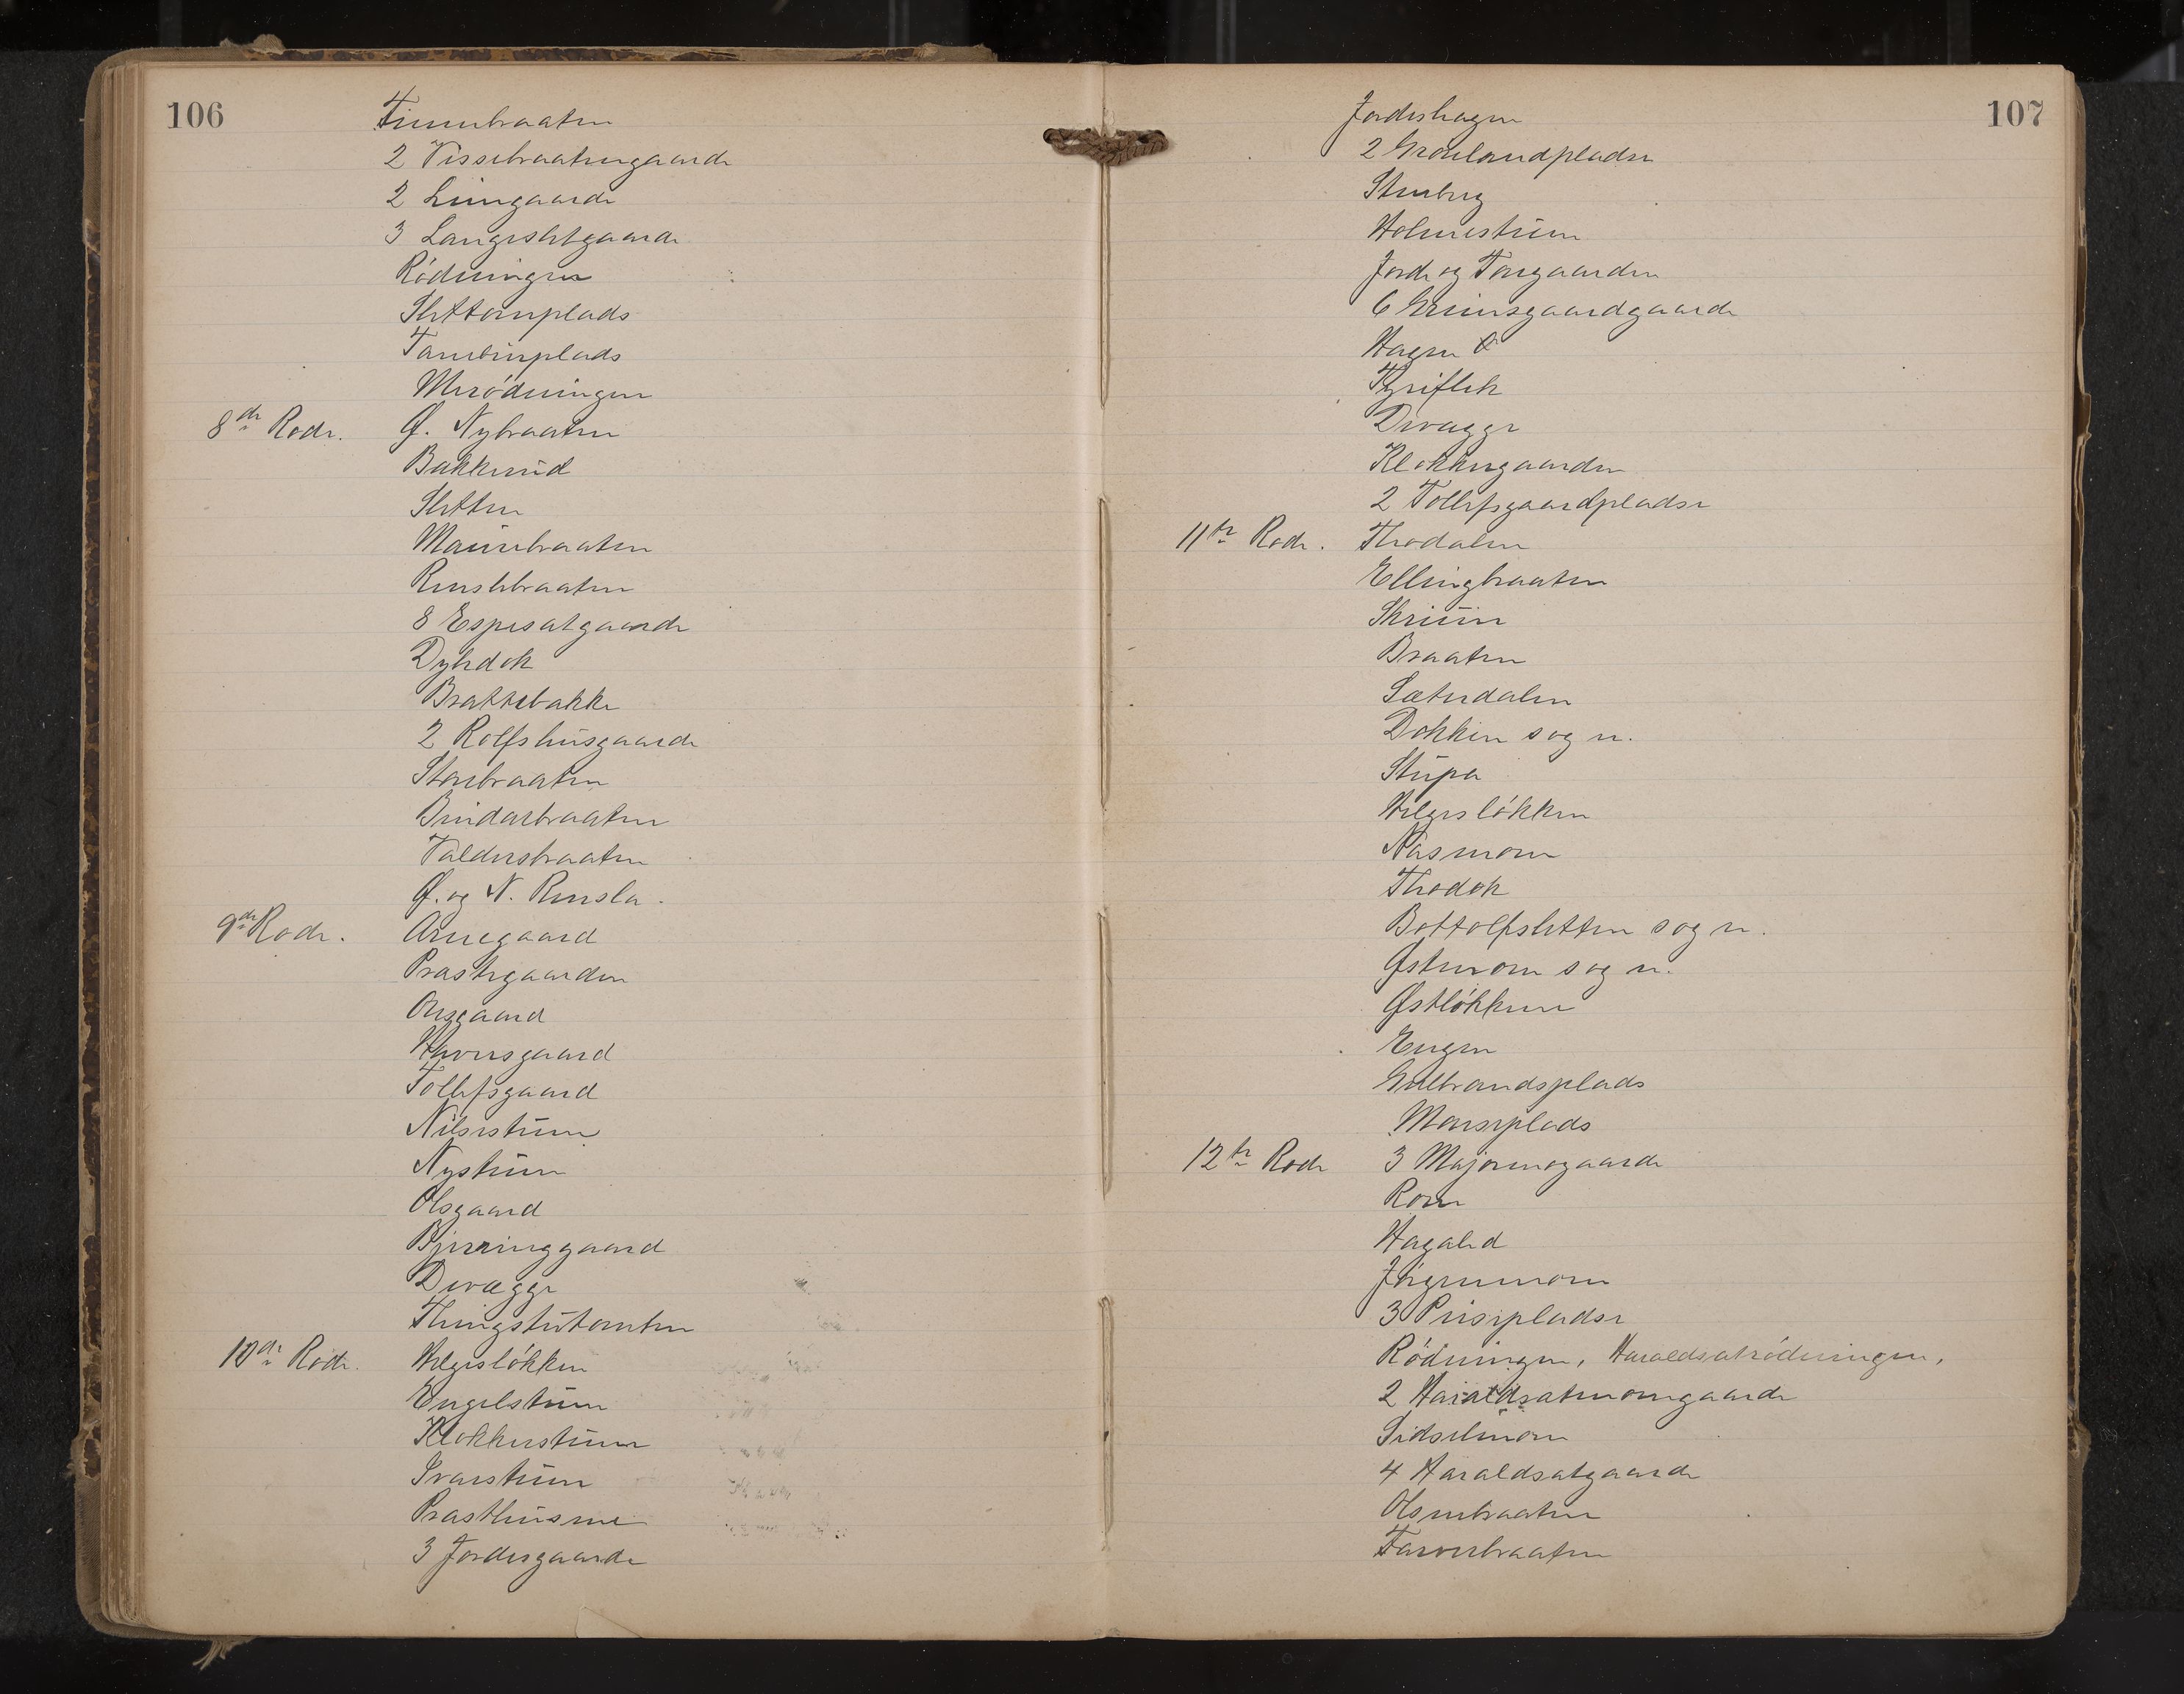 106
Finnebraaten
2 Vissebraatengaarde
2 Liengaarde
3 Langesletgaarde
Rödningen
Slettomplads
Tamburplads
Merödningen
8de Rode. Ø. Nybraaten
Bakkerud
Sletten
Maurebraaten
Renslebraaten
8 Espesatgaarde
Dyledok
Brattebakke
2 Rolfshusgaarde
Storebraaten
Bindarbraaten
Valdersbraaten
Ø. og N. Rensla.
9de Rode. Arnegaard
Prestegaarden
Ousgaard
Haversgaard
Tollefsgaard
Nilsestuen
Nystuen
Olsgaard
Bjerringgaard
Devegge
Thingstutomten
10de Rode. Helgesløkken
Engelstuen
Klokkerstuen
Svarstuen
Prasthusene
3 Jordesgaarde
107
Jordeshagen
2 Grønlandpladse
Stenberg
Holmestuen
Jorde og Torgaarden
6 Grimsgaardgaarde
Hagen Ø
Thriflek
Devegge
Klokkergaarden
2 Tollefsgaardpladse
11te Rode. Throdalen
Ellingbraaten
Skriuin
Braaten
Sæterdalen
Dokken s og n.
Stupa
Helgesløkken
Næsmoen
Throdok
Bottolfsletten s og n.
Østmoen s og n.
Østløkken
Engen
Gulbrandsplads
Monseplads
12te Rode 3 Majormogaarde
Roen
Hagaled
Jørgenmoen
3 Priseplads
Rödningen, Haraldsatrödningen,
2 Haraldsatmoengaarde
Sidselmoen
4 Haraldsatgaarde
Olsenbraaten
Farverbraaten